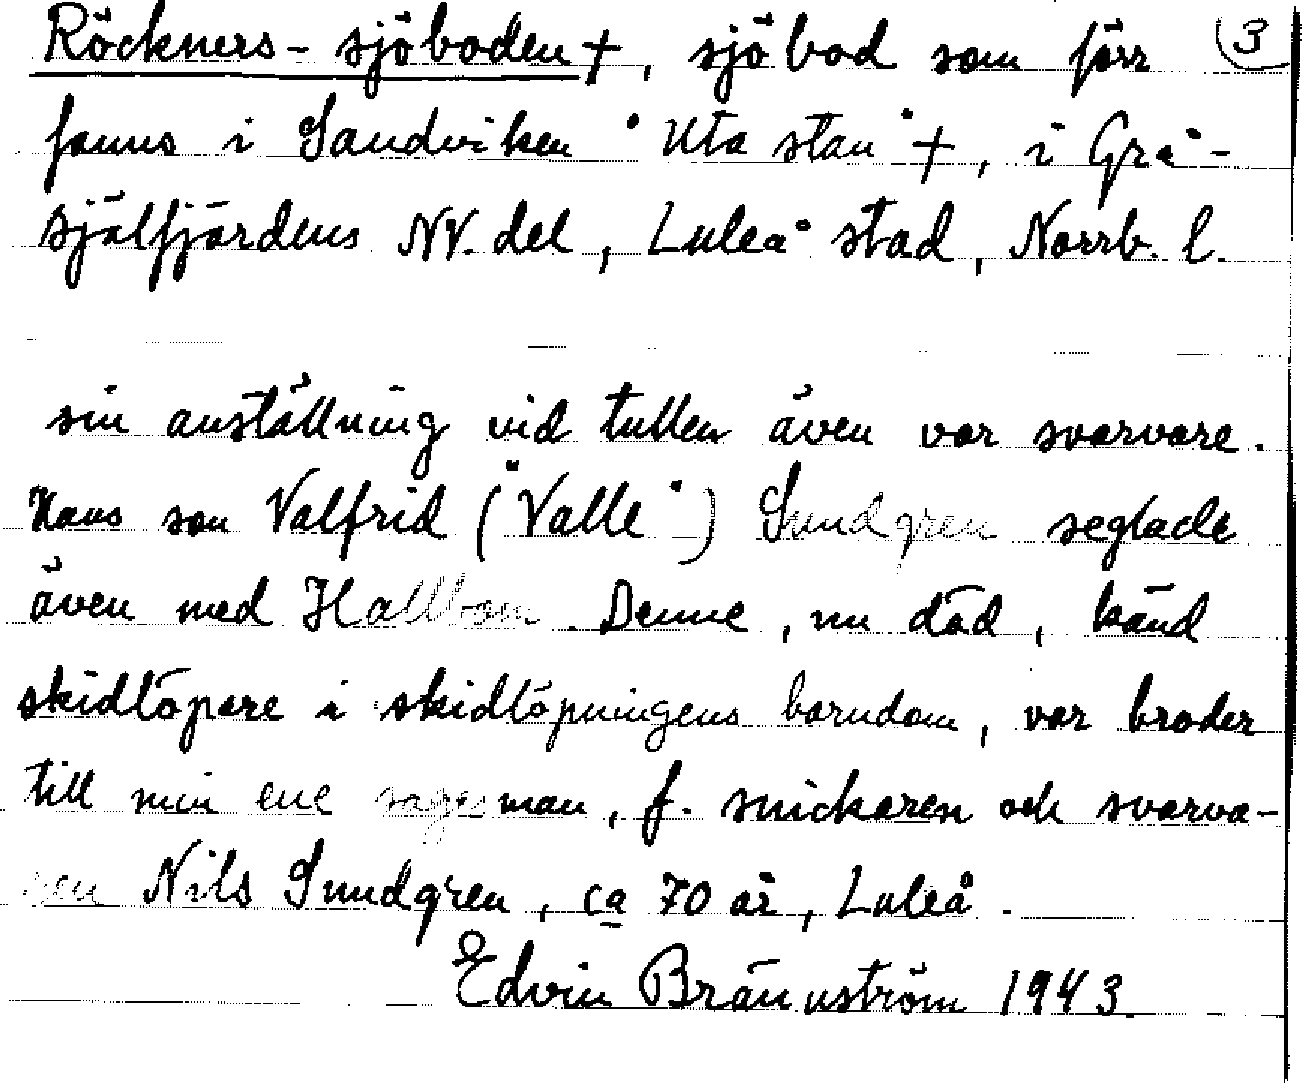 Röckners-sjöboden +, sjöbod som förr (3
fanns i Sandviken "Uta stan" +, i Grå-
själfjärdens NV. del, Luleå stad, Norrb. l.
sin anställning vid tullen även var svarvare.
Hans son Valfrid ("Valle") Sundgren seglade
även med Hallbom. Denne, nu död, känd
skidlöpare i skidlöpningens barndom, var broder
till min ene sagesman, f. snickaren och svarva-
ren Nils Sundgren, ca 70 år, Luleå.
Edvin Brännström 1943.